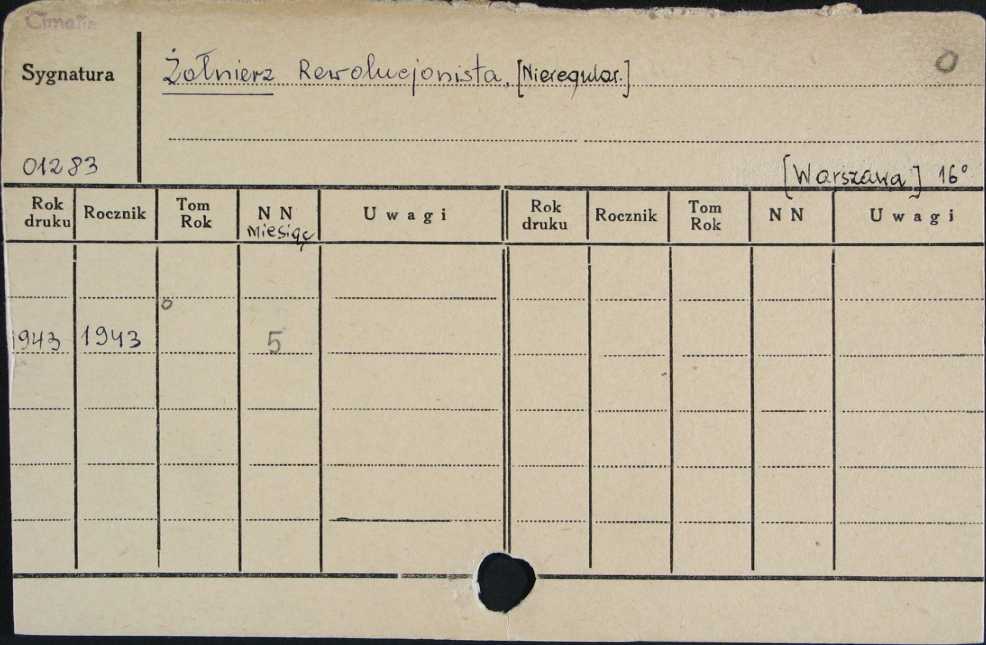 Cimelia
Sygnatura
Żołnierz Rewolucjonista. [Nieregular.]
O
01283
[Warszawa] 16°
Rok druku Rocznik Tom Rok NN Miesiąc Uwagi Rok druku Rocznik Tom Rok NN Uwagi
1943 1943 5